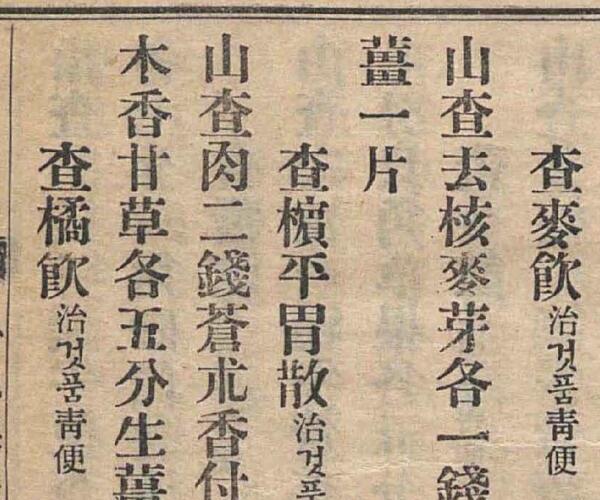 查麥飮治것품靑便
山查去核麥芽各一錢
薑一片
查檳平胃散治것품
山查肉二錢蒼朮香付
木香甘草各五分生薑
查橘飮治것품靑便